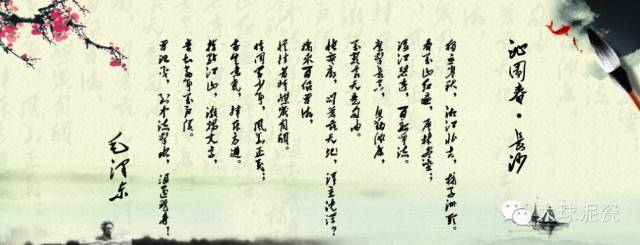 沁园春·长沙
独立寒秋，湘江北去，橘子洲头。
看万山红遍，层林尽染；
漫江碧透，百舸争流。
鹰击长空，鱼翔浅底，
万类霜天竞自由。
怅寥廓，问苍茫大地，谁主沉浮？
携来百侣曾游，
忆往昔峥嵘岁月稠。
恰同学少年，风华正茂；
书生意气，挥斥方遒。
指点江山，激扬文字，
粪土当年万户侯。
曾记否，到中流击水，浪遏飞舟！
毛泽东
大球泥瓷